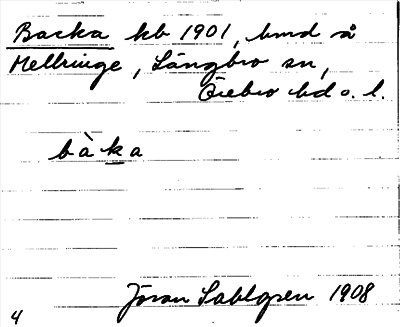 Backa kb 1901, bmd å
Mellringe, Längbro sn,
Örebro hd o. l.
bàka
Jöran Sahlgren 1908
4